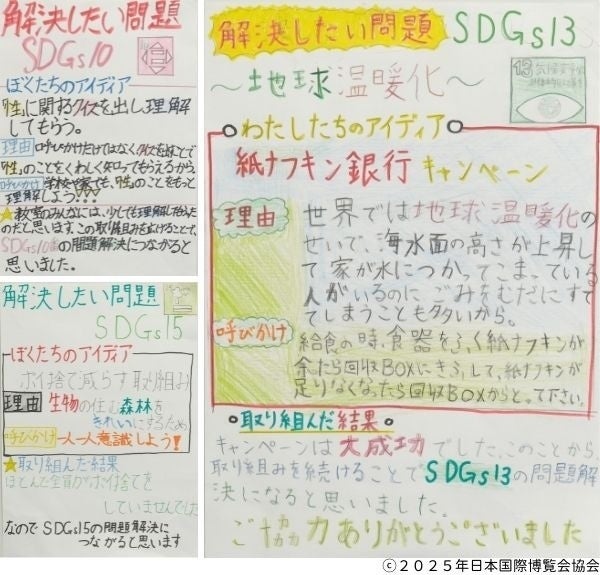 解決したい問題
SDGs10
ぼくたちのアイディア
「性」に関するクイズを出し、理解
してもらう。
理由 呼びかけだけではなく、クイズを出すことで
「性」のことをくわしく知ってもらえるから
呼びかけ 学校や家でも、「性」のことをもっと
理解しよう!!!
★教室のみんなには、少しでも理解してもらえた
のだと思います。この取り組みを広げることで、
SDGs10の問題解決につながると
思いました。
解決したい問題
SDGs15
ぼくたちのアイディア
ポイ捨て減らす取り組み
理由 生物の住む森林を
きれいにするため
呼びかけ 一人一人意識しよう!
★取り組んだ結果
ほとんど全員がポイ捨てを
していませんでした
なのでSDGs15の問題解決に
つながると思います
解決したい問題 SDGs13
〜地球温暖化〜
13 気候変動に
わたしたちのアイディア
紙ナフキン銀行キャンペーン
理由
世界では地球温暖化の
せいで、海水面の高さが上昇し
て家が水につかってこまっている
人がいるのにごみをむだにすて
てしまうことも多いから。
呼びかけ
給食の時、食器をふく紙ナフキンが
余たら回収BOXにきふして、紙ナフキンが
足りなくなったら回収BOXからとって下さい。
取り組んだ結果
キャンペーンは大成功でした。このことから、
取り組みを続けることでSDGs13の問題解
決になると思いました。
ご協力ありがとうございました
©2025年日本国際博覧会協会